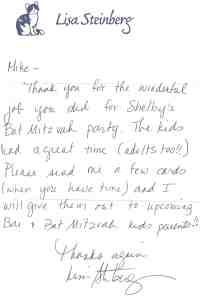 Lisa Steinberg
Mike -
Thank you for the wonderful
job you did for Shelby's
Bat Mitzvah party. The kids
had a great time (adults too!!)
Please send me a few cards
(when you have time) and I
will give them out to upcoming
Bar + Bat Mitzvah kids parents!!
Thanks again
Lisa Steinberg